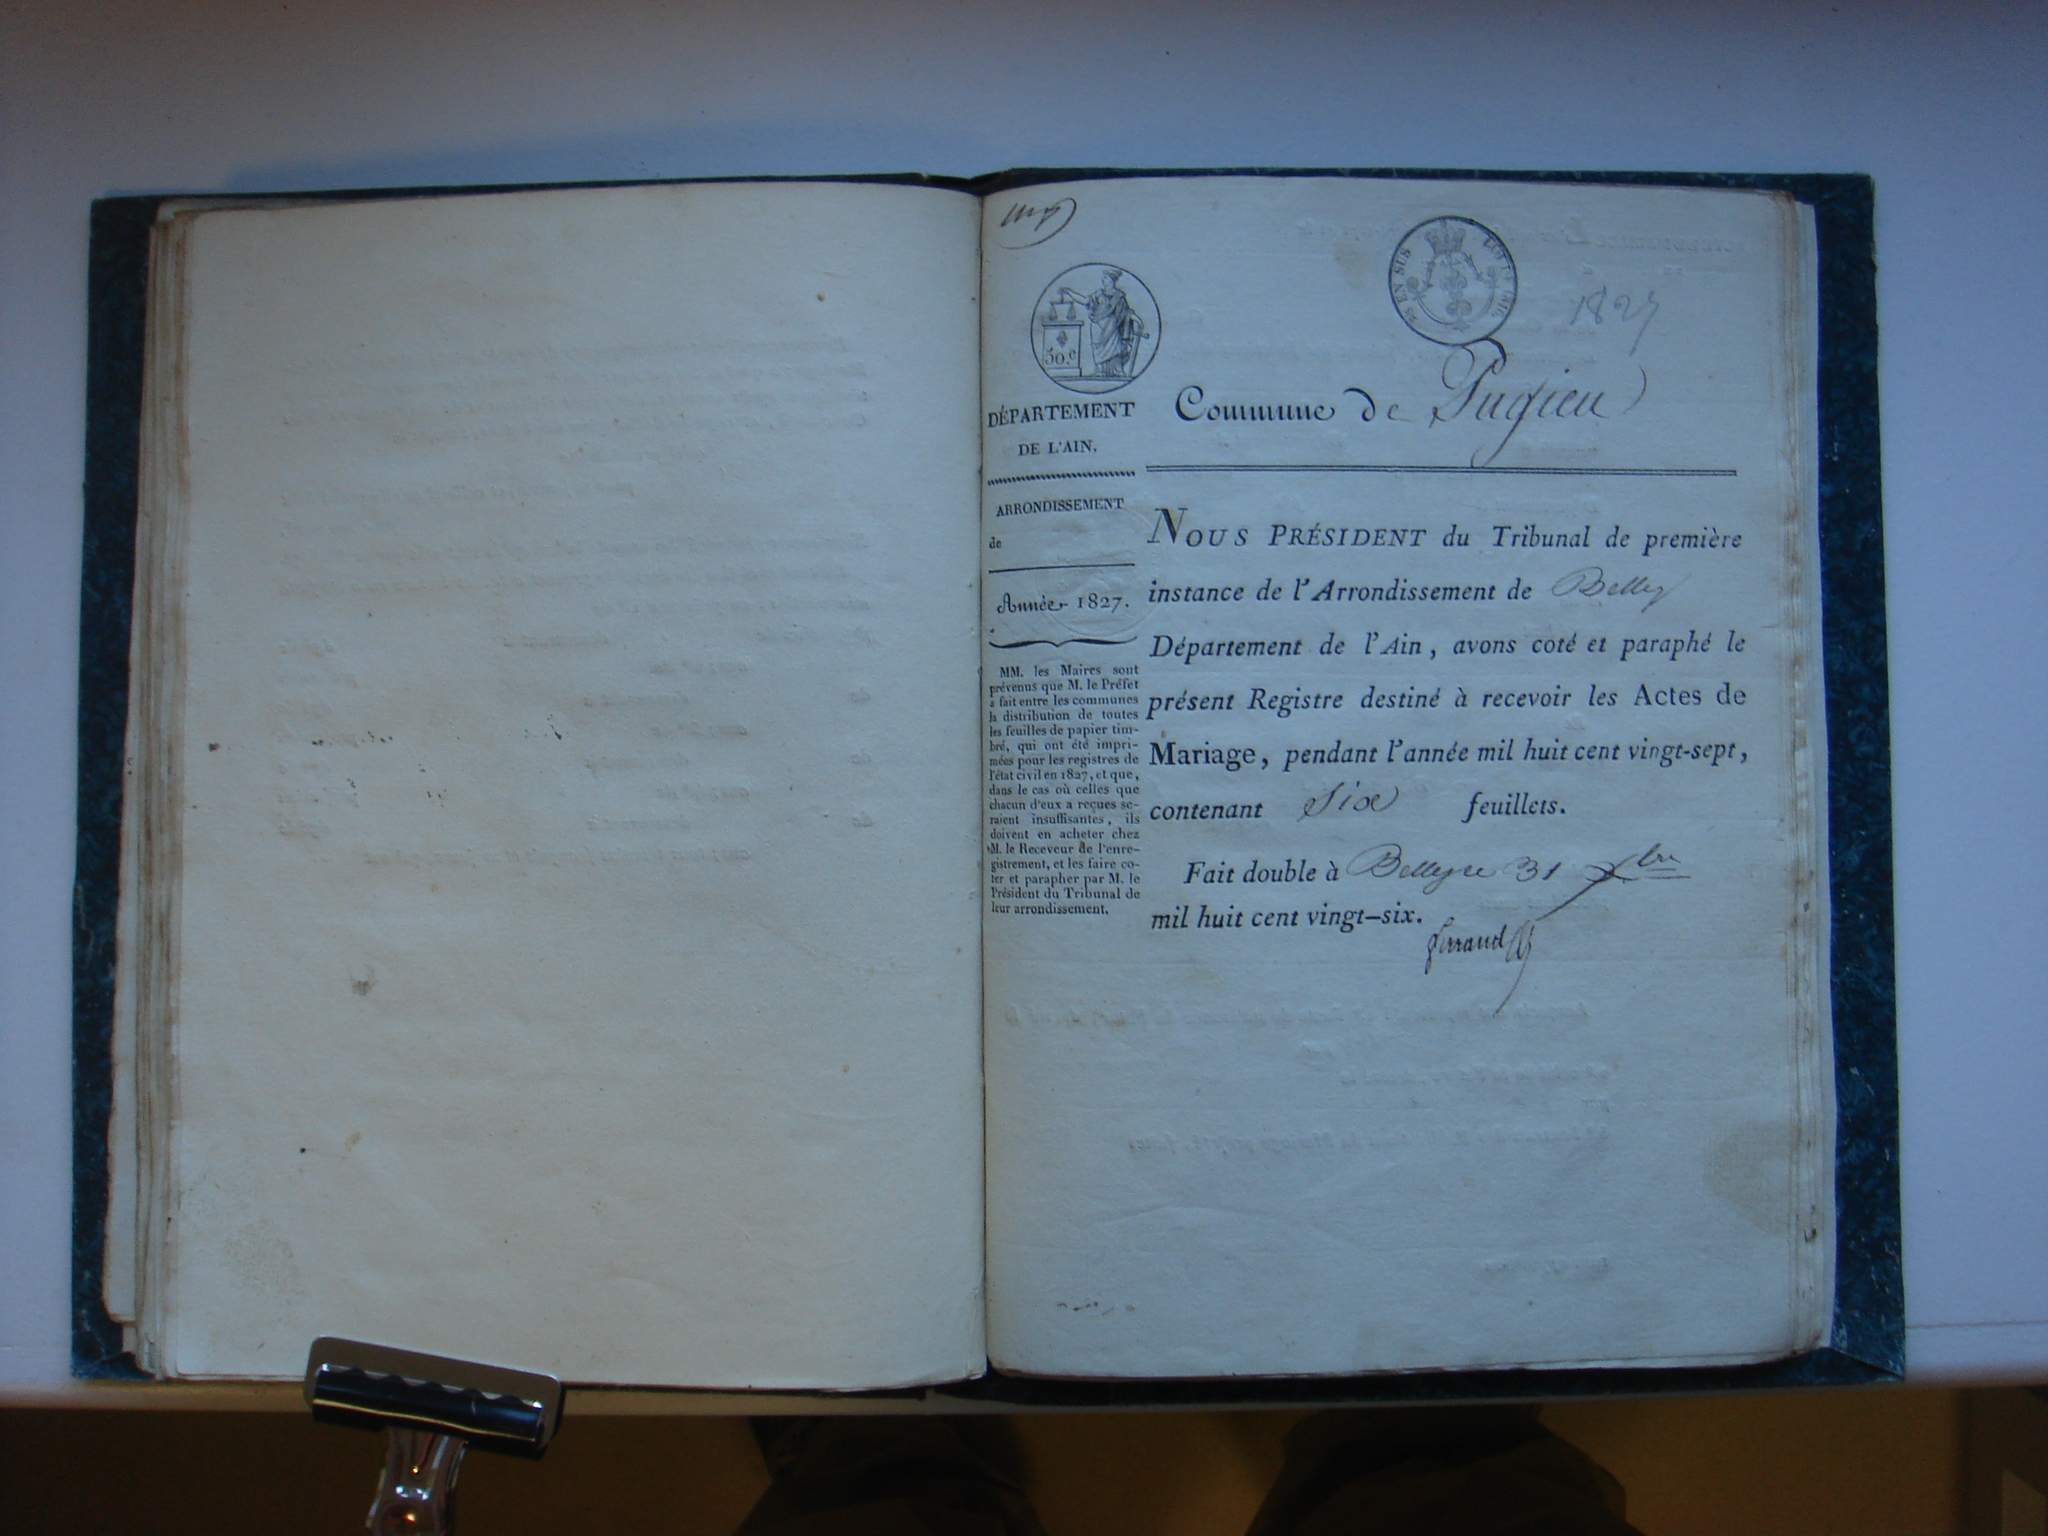 50.c
EN SUS
1827
DÉPARTEMENT
DE L'AIN.
ARRONDISSEMENT
de
Année 1827.
MM. les Maires sont
prévenus que M. le Préfet
a fait entre les communes
la distribution de toutes
les feuilles de papier tim-
bré, qui ont été impri-
mées pour les registres de
l'état civil en 1827, et que,
dans le cas où celles que
chacun d'eux a reçues se-
raient insuffisantes, ils
doivent en acheter chez
M. le Receveur de l'enre-
gistrement, et les faire co-
ter et parapher par M. le
Président du Tribunal de
leur arrondissement.
Commune de Pugieu
NOUS PRÉSIDENT du Tribunal de première
instance de l'Arrondissement de Belley
Département de l'Ain, avons coté et paraphé le
présent Registre destiné à recevoir les Actes de
Mariage, pendant l'année mil huit cent vingt-sept,
contenant Six feuillets.
Fait double à Belley ce 31 Xbre
mil huit cent vingt-six.